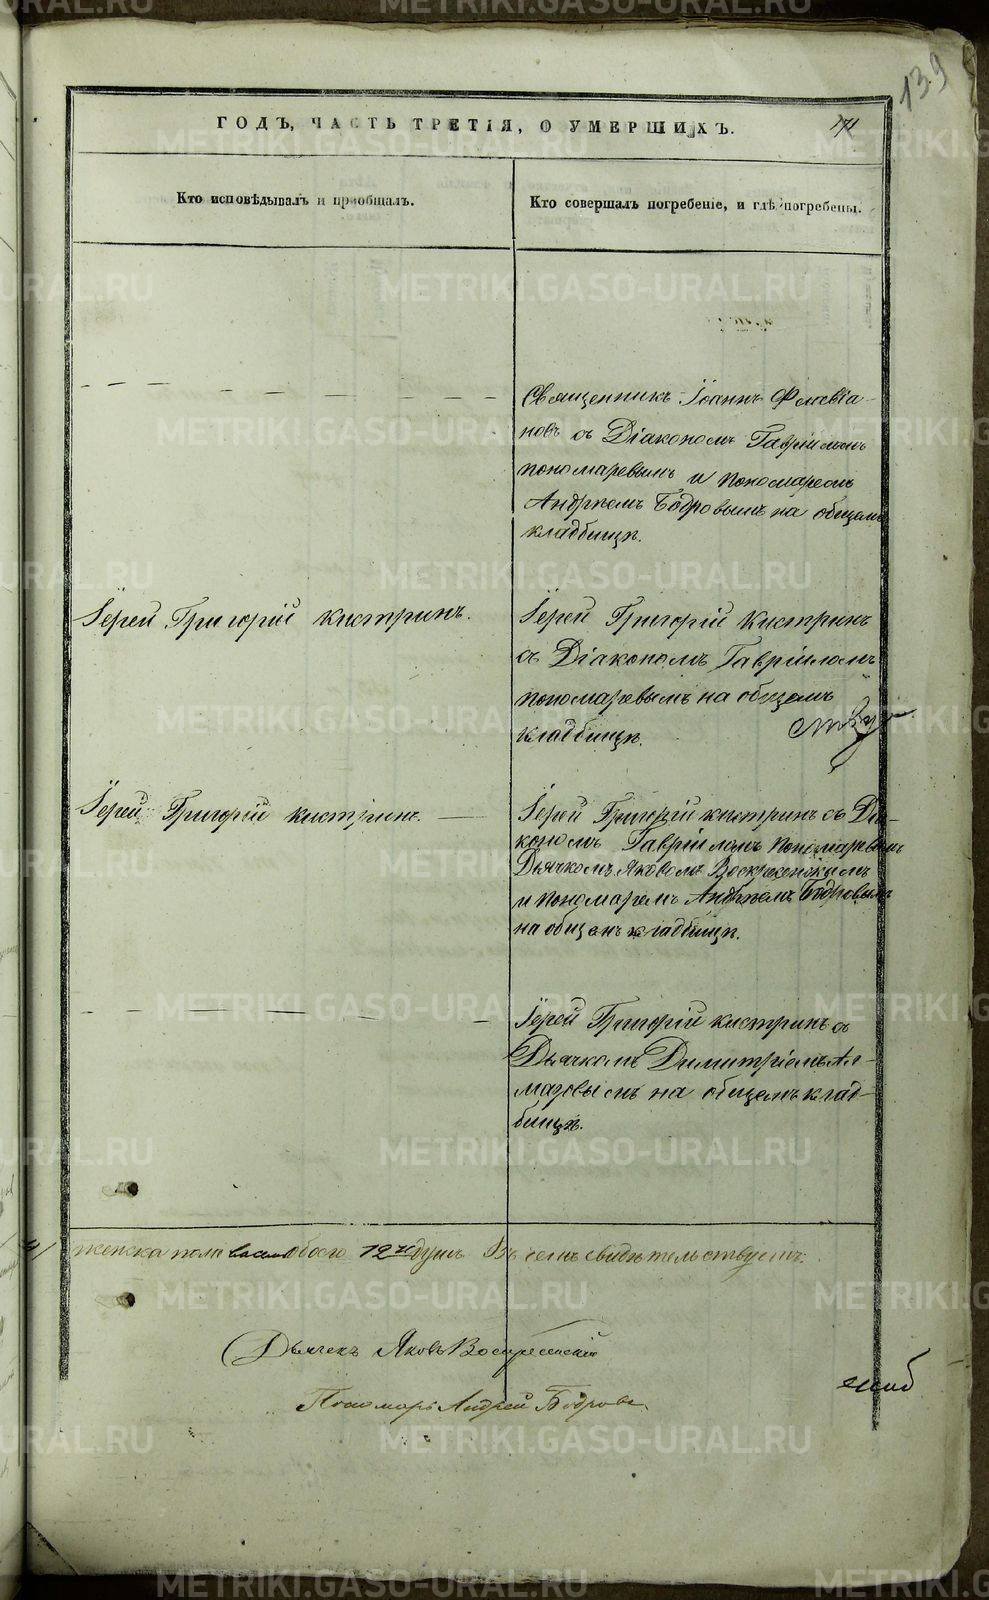 139
ГОДЪ, ЧАСТЬ ТРЕТІЯ, О УМЕРШИХЪ.
171
Кто исповѣдывалъ и пріобщалъ.
Кто совершалъ погребеніе, и гдѣ погребены.
Священникъ Іоаннъ Флавіа-
новъ съ Діакономъ Гавріиломъ
пономаревымъ и пономаремъ
Андреемъ Бодровымъ на общемъ
кладбищѣ.
Іерей Григорій Кистринъ.
Іерей Григорій Кистринъ
съ Діакономъ Гавріиломъ
пономаревымъ на общемъ
кладбищѣ.
Іерей Григорій Кистринъ.
Іерей Григорій Кистринъ съ Діа-
кономъ Гавріиломъ Пономаревымъ
Дьячкомъ Яковомъ Воскресенскимъ
и пономаремъ Андреемъ Бодровымъ
на общемъ кладбищѣ.
Іерей Григорій Кистринъ съ
Дьячкомъ Димитріемъ Ал-
мазовымъ на общемъ клад-
бищѣ.
женска пола обоего 12 душъ Въ семъ свидѣтельствуемъ:
Дьячекъ Яковъ Воскресенскій
Пономарь Андрей Бодровъ
METRIKI.GASO-URAL.RU